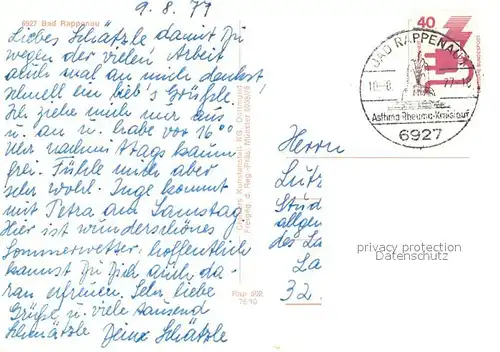 6927 Bad Rappenau
9. 8. 77
Liebes Schätzle damit Du
wegen der vielen Arbeit
auch mal an mich denkst
schnell ein lieb's Grüßle.
Ich ziehe mich nur aus
u. an u. habe vor 16⁰⁰
Uhr nachmittags kaum
frei. Fühle mich aber
sehr wohl. Inge kommt
mit Petra am Samstag.
Hier ist wunderschönes
Sommerwetter, hoffentlich
kannst Du Dich auch da-
ran erfreuen. Sehr liebe
Grüße u. viele tausend
Schmätzle Deine Schätzle
Kunstanstalt KG, Dortmund
Freigeg. d. Reg.-Präs. Münster
40
DEUTSCHE BUNDESPOST
BAD RAPPENAU
10.-8. 77-12
Asthma-Rheuma-Kreislauf
6927
Herrn
Lutz
Stud
allgem
des La
La
32.
privacy protection
Datenschutz